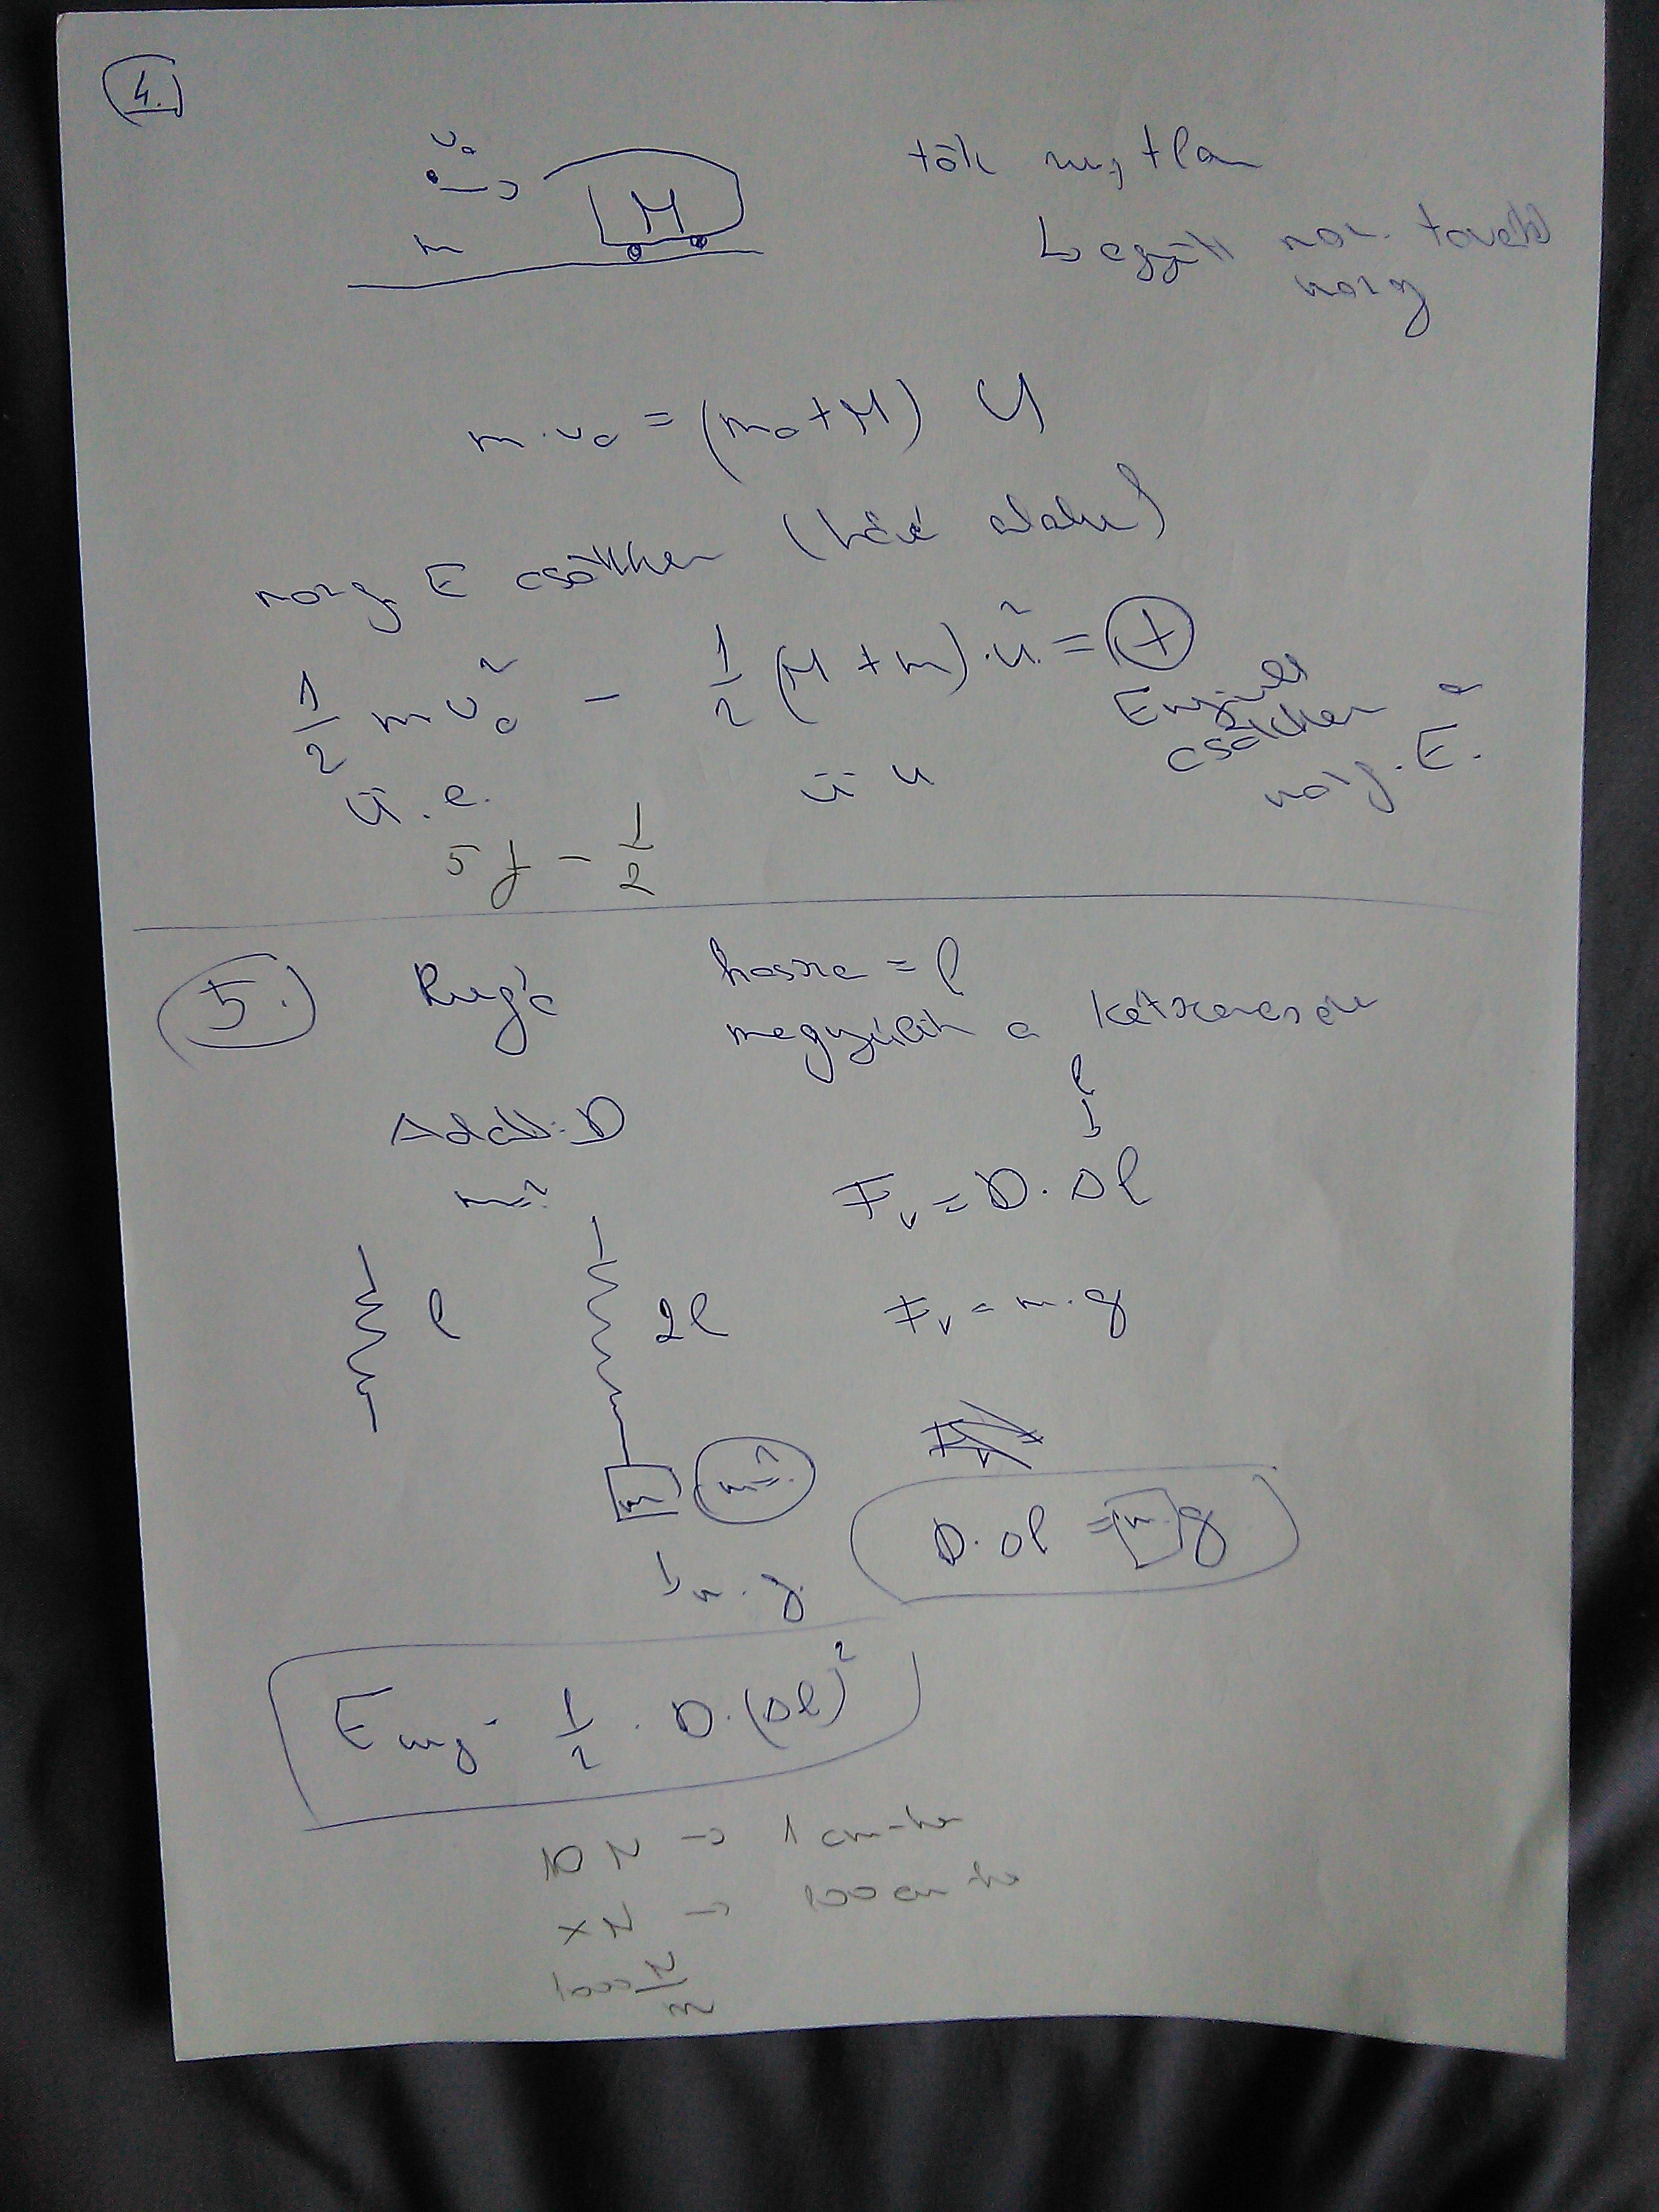 4.
v₀
m
M
tök rugtlan
↳ együtt
tovább
mozg
m·v₀ = (m₀+M) U
mozg. E csökken (hővé alakul)
1/2 m v₀² - 1/2 (M+m)·u² = ⊕
Ennyivel csökken a mozg. E.
ü.e.
ü u
5 J - 1/2
5.
Rugó
hossza = l
megnyúlik a kétszeresére
Adott: D
m=?
l
↓
Fᵥ = D·Δl
l
2l
Fᵥ = m·g
m
m=?
D·Δl = m·g
↳ m·g
E rug = 1/2 · D·(Δl)²
10 N → 1 cm-hez
x N → 100 cm-hez
1000 N/m